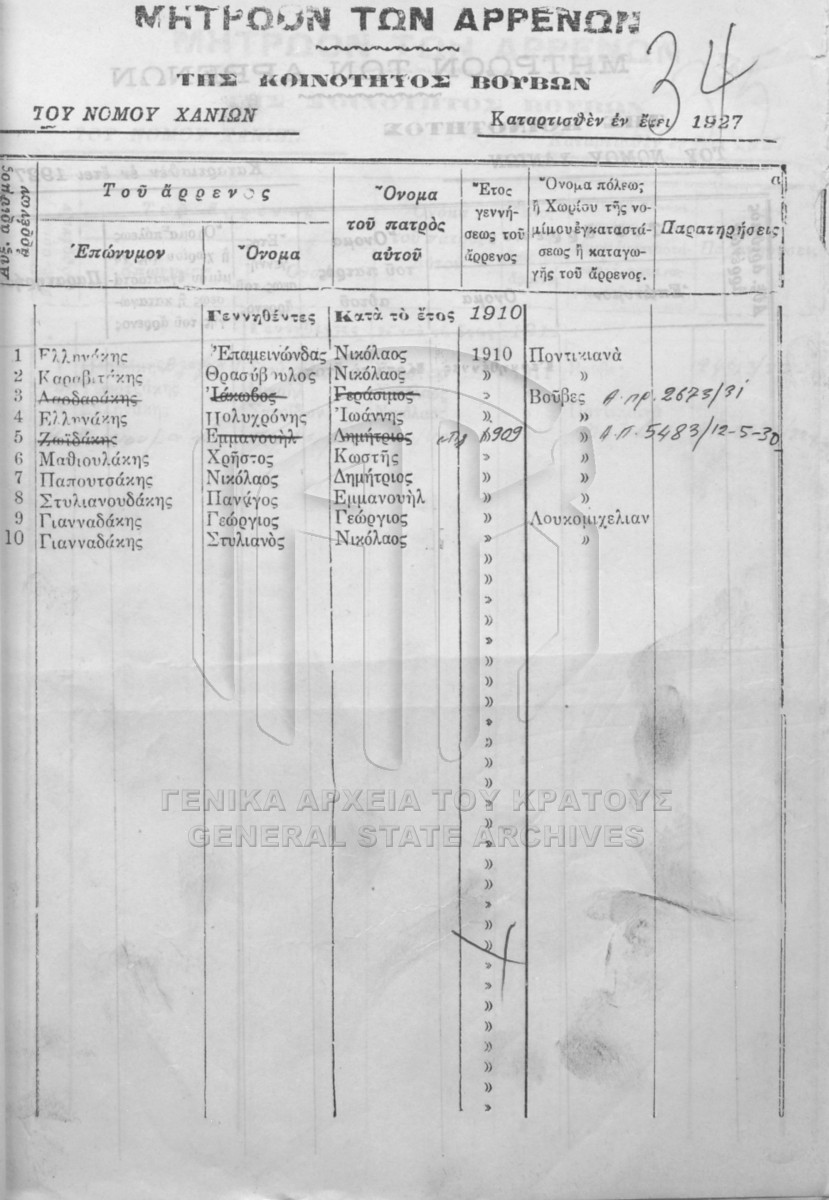 ΜΗΤΡΩΟΝ ΤΩΝ ΑΡΡΕΝΩΝ
ΤΗΣ ΚΟΙΝΟΤΗΤΟΣ ΒΟΥΒΩΝ
34
ΤΟΥ ΝΟΜΟΥ ΧΑΝΙΩΝ
Καταρτισθὲν ἐν ἔτει 1927
Αὐξ. ἀριθμὸς ἀρρένων
Τοῦ ἄρρενος
Ἐπώνυμον
Ὄνομα
Ὄνομα τοῦ πατρὸς αὐτοῦ
Ἔτος γεννήσεως τοῦ ἄρρενος
Ὄνομα πόλεως ἢ Χωρίου τῆς νομίμου ἐγκαταστάσεως ἢ καταγωγῆς τοῦ ἄρρενος.
Παρατηρήσεις
Γεννηθέντες Κατὰ τὸ ἔτος 1910
1 Ἑλληνάκης Ἐπαμεινώνδας Νικόλαος 1910 Ποντικιανὰ
2 Καραβιτάκης Θρασύβουλος Νικόλαος » »
3 Δαρδαράκης Ἰάκωβος Γεράσιμος » Βοῦβες Α πρ. 2673/31
4 Ἑλληνάκης Πολυχρόνης Ἰωάννης » »
5 Ζωϊδάκης Ἐμμανουὴλ Δημήτριος » 1909 » Α.Π. 5483/12-5-30
6 Μαθιουλάκης Χρῆστος Κωστῆς » »
7 Παπουτσάκης Νικόλαος Δημήτριος » »
8 Στυλιανουδάκης Πανάγος Ἐμμανουὴλ » »
9 Γιανναδάκης Γεώργιος Γεώργιος » Λουκομιχελιαν
10 Γιανναδάκης Στυλιανὸς Νικόλαος » »
ΓΕΝΙΚΑ ΑΡΧΕΙΑ ΤΟΥ ΚΡΑΤΟΥΣ
GENERAL STATE ARCHIVES